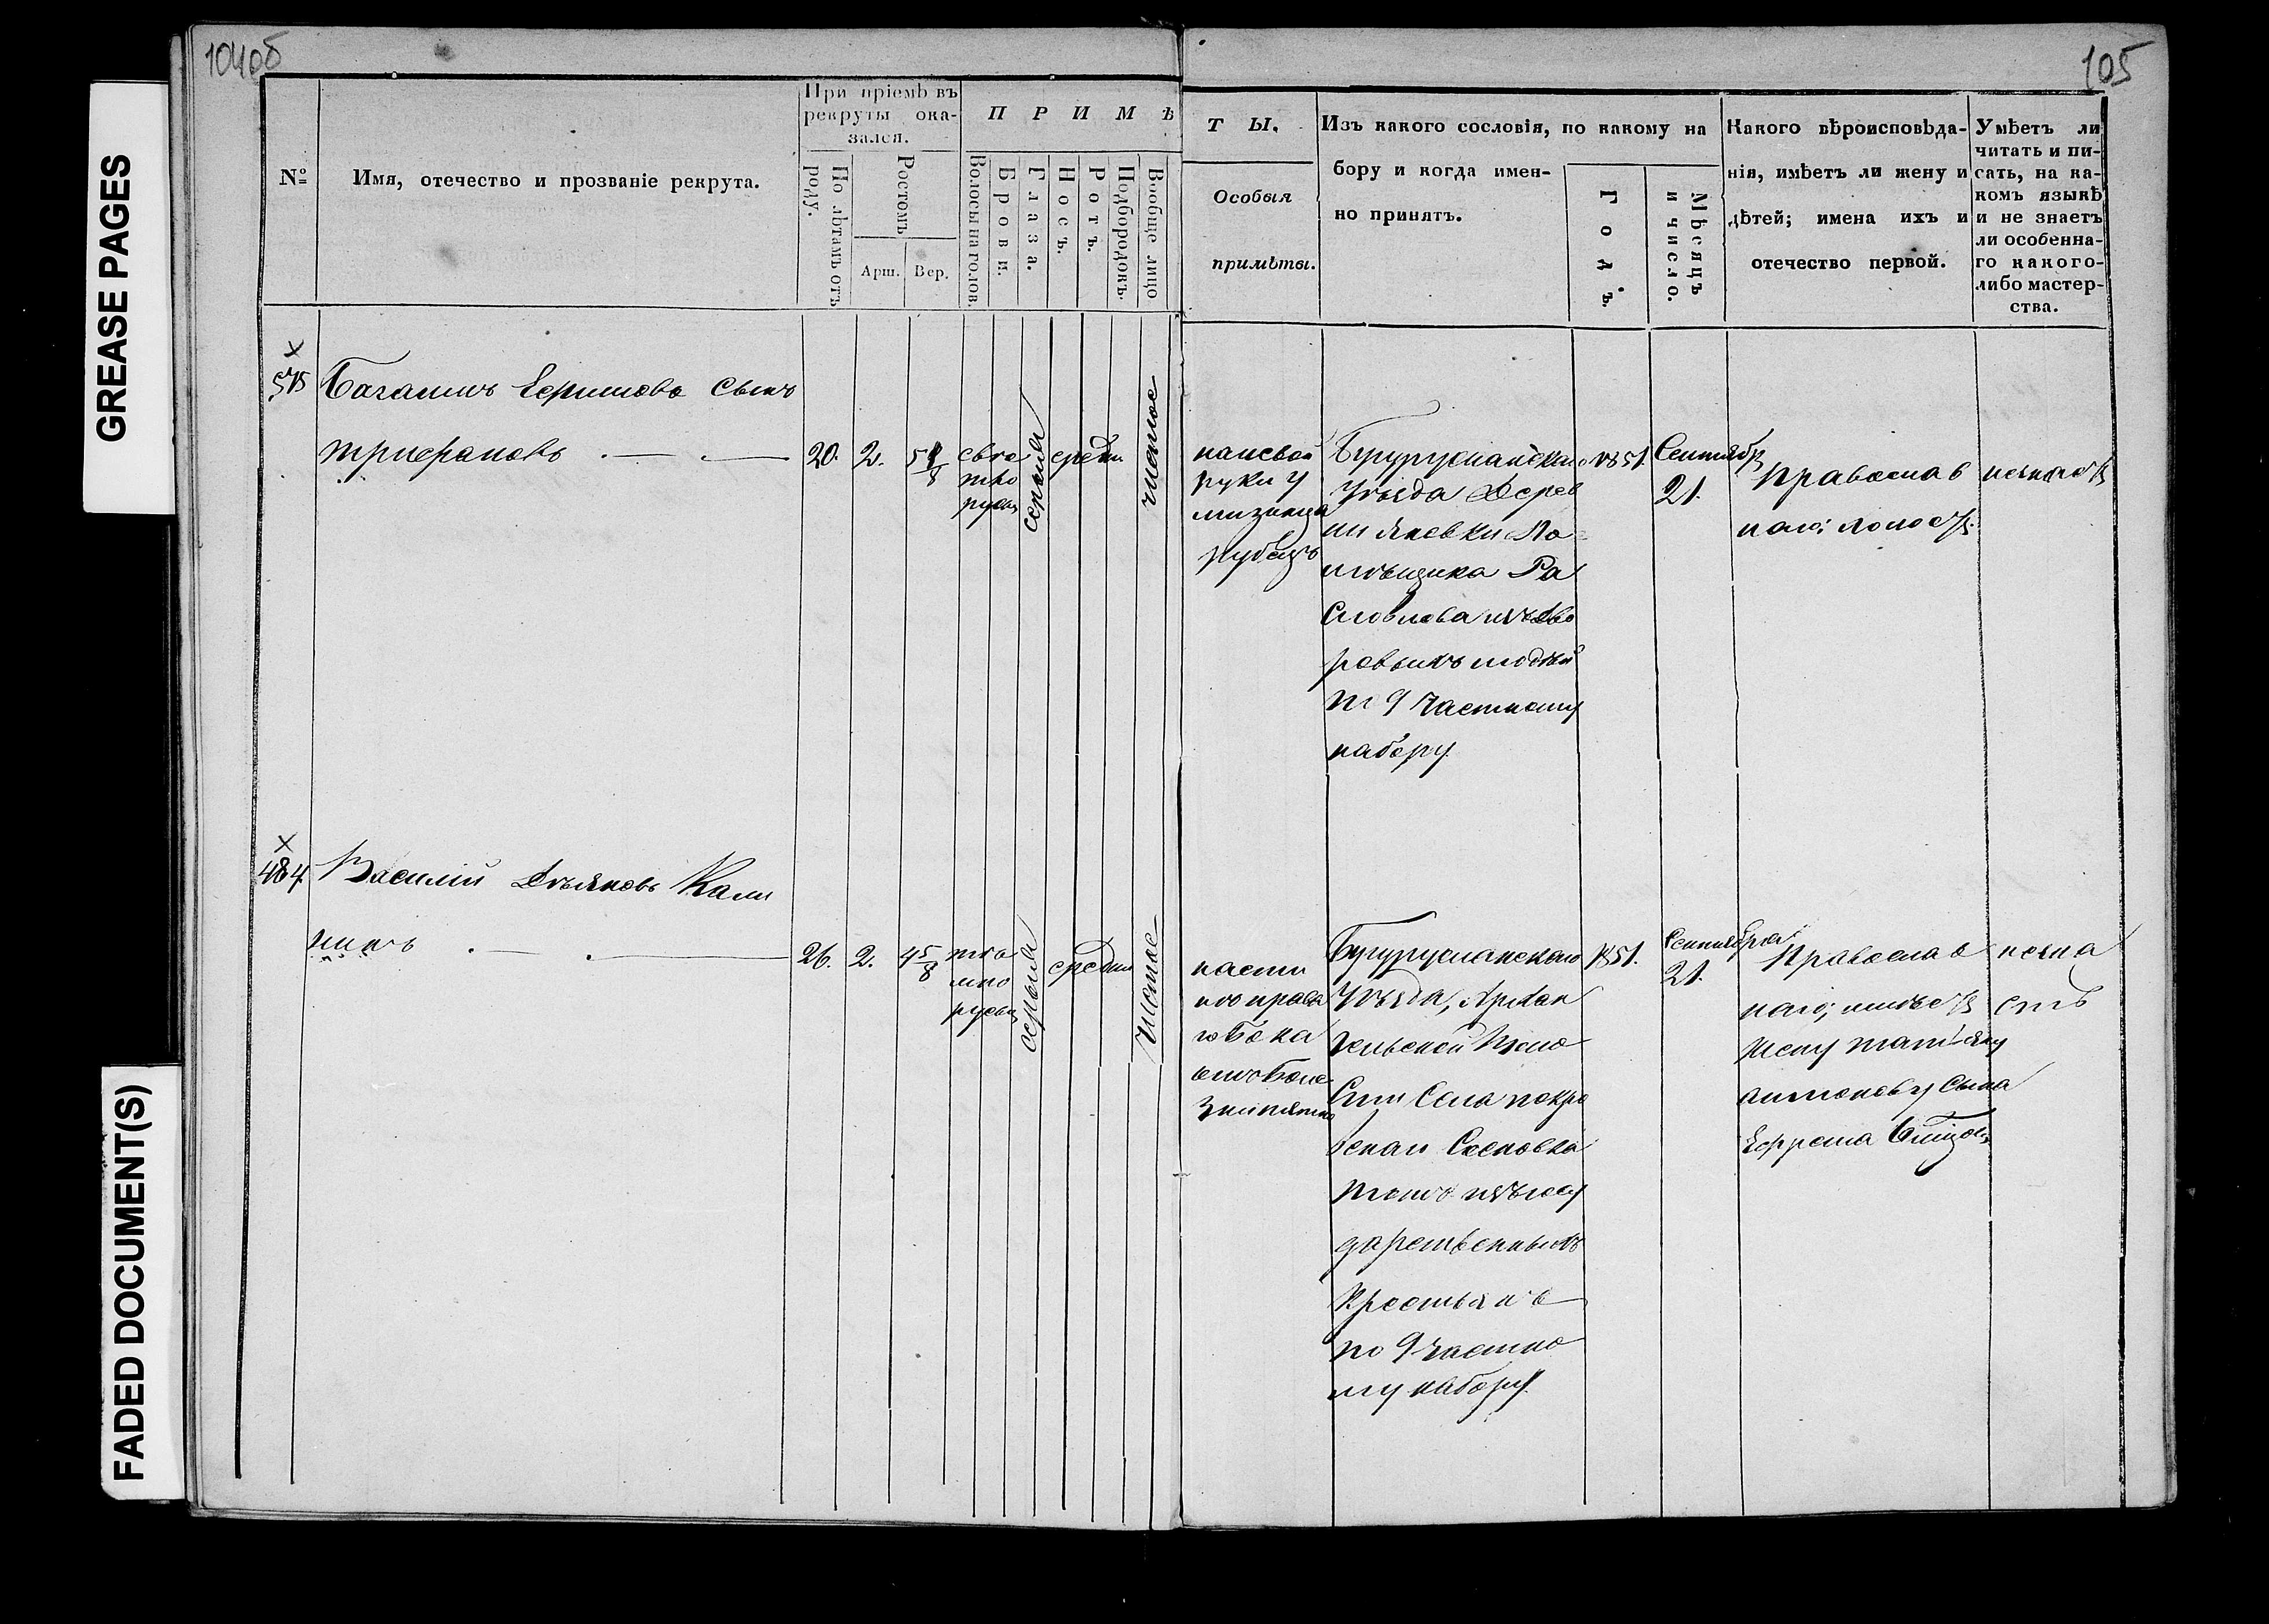 104об
105
GREASE PAGES
FADED DOCUMENT(S)
№
Имя, отечество и прозваніе рекрута.
При пріемѣ въ
рекруты ока-
зался.
По лѣтамъ отъ
роду.
Ростомъ
Арш.
Вер.
П Р И М Ѣ
Волосы на голов.
Брови.
Глаза.
Носъ.
Ротъ.
Подбородокъ.
Вообще лицо
Т Ы.
Особыя
примѣты.
Изъ какого сословія, по какому на
бору и когда имен-
но принятъ.
Годъ.
Мѣсяцъ
и число.
Какого вѣроисповѣда-
нія, имѣетъ ли жену и
дѣтей; имена ихъ и
отечество первой.
Умѣетъ ли
читать и пи-
сать, на ка-
комъ языкѣ
и не знаетъ
ли особенна-
го какого-
либо мастер-
ства.
575
сынъ
20.
2.
свѣ
тло
русы
серыя
средн
чистое
руки у
мизинца
рубецъ
Бугурусланскаго
Уѣзда Дерев
ни Яковки По
мѣщика Ра
изъ дво
ровыхъ людей
по 9 частному
набору
1851.
Сентябр
21.
православ
наго; холостъ
484
Василій Кали
нинъ
26.
2.
4 5/8
те
мно
русы
серыя
средни
чистое
права
го бока
Бугурусланскаго
Уѣзда, Архан
гельской Воло
сти Села покро
вскаго Сосновка
тожъ изъ госу
дарственныхъ
Крестьянъ
по 9 частно
му набору.
1851.
Сентября
21.
православ
наго; имѣетъ
жену татьяну
антонову сына
Ефрема
незна
етъ